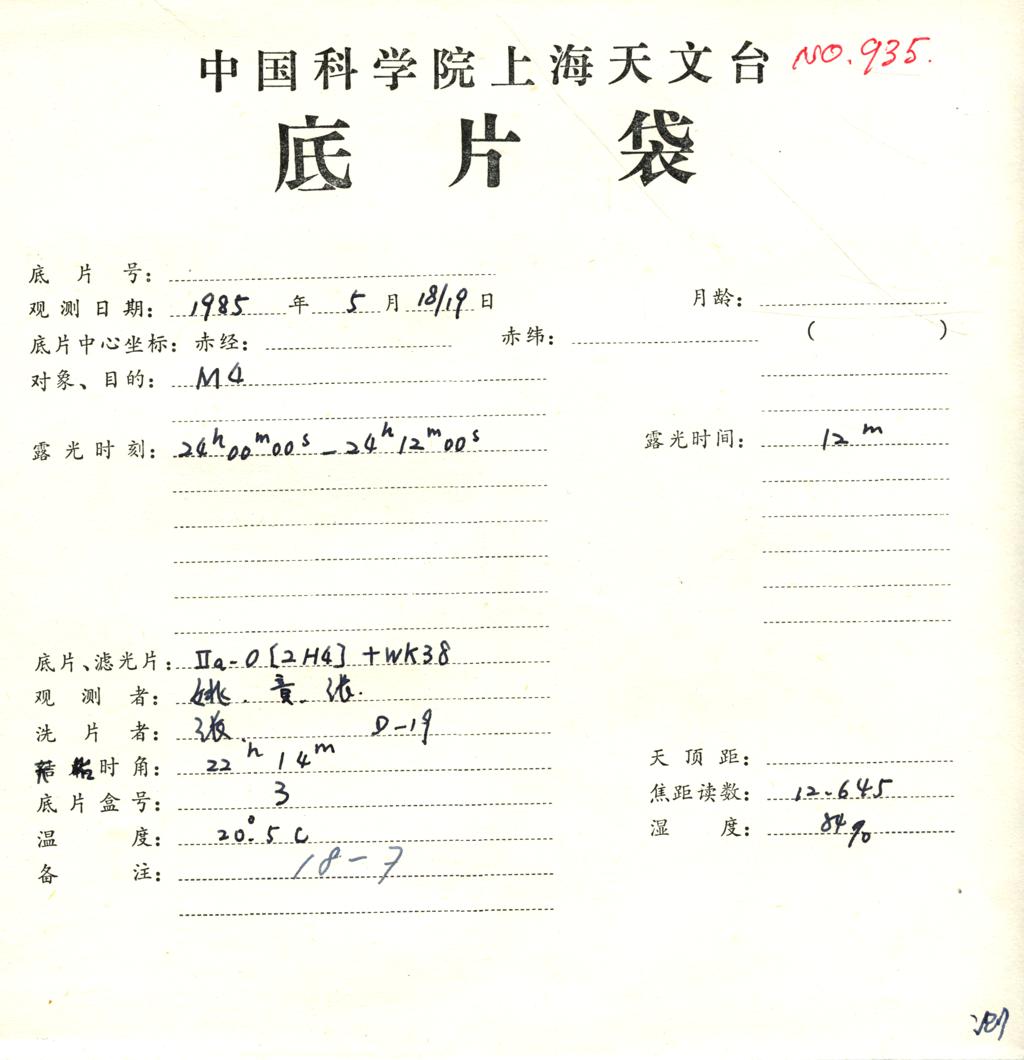 中国科学院上海天文台 NO.935.
底片袋
底片号：
观测日期： 1985 年 5 月 18/19 日 月龄：
底片中心坐标：赤经： 赤纬： ( )
对象、目的： M4
露光时刻： 24h00m00s - 24h12m00s 露光时间： 12m
底片、滤光片： IIa-O [2H4] +WK38
观测者： 姚. 袁. 张.
洗片者： 张. D-19
时角： 22h 14m 天顶距：
底片盒号： 3 焦距读数： 12.645
温度： 20°.5 C 湿度： 84%
备注： 18-7